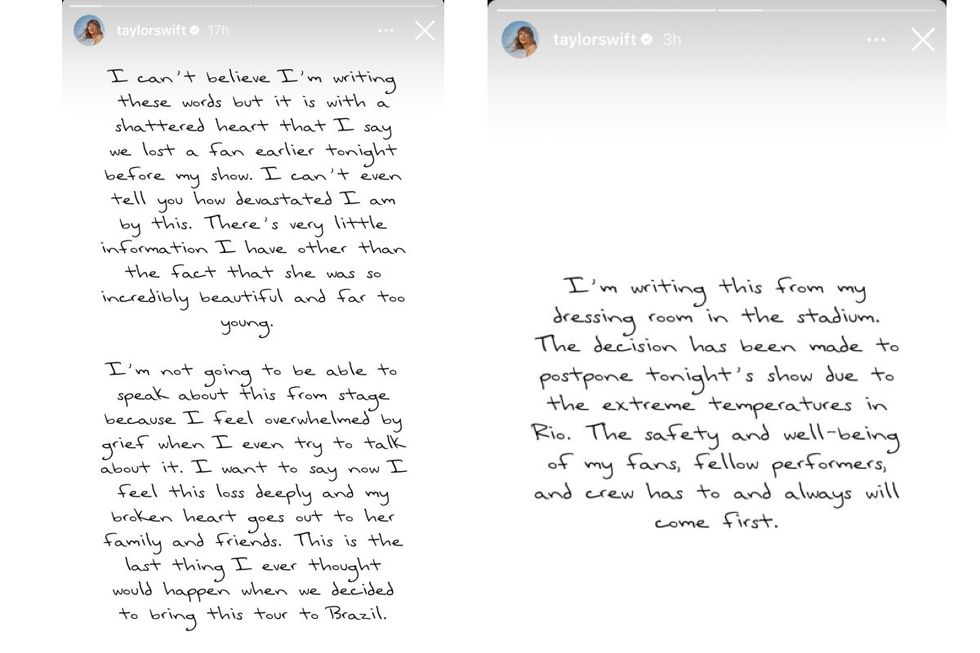 taylorswift 17h
I can't believe I'm writing
these words but it is with a
shattered heart that I say
we lost a fan earlier tonight
before my show. I can't even
tell you how devastated I am
by this. There's very little
information I have other than
the fact that she was so
incredibly beautiful and far too
young.
I'm not going to be able to
speak about this from stage
because I feel overwhelmed by
grief when I even try to talk
about it. I want to say now I
feel this loss deeply and my
broken heart goes out to her
family and friends. This is the
last thing I ever thought
would happen when we decided
to bring this tour to Brazil.
taylorswift 3h
I'm writing this from my
dressing room in the stadium.
The decision has been made to
postpone tonight's show due to
the extreme temperatures in
Rio. The safety and well-being
of my fans, fellow performers,
and crew has to and always will
come first.